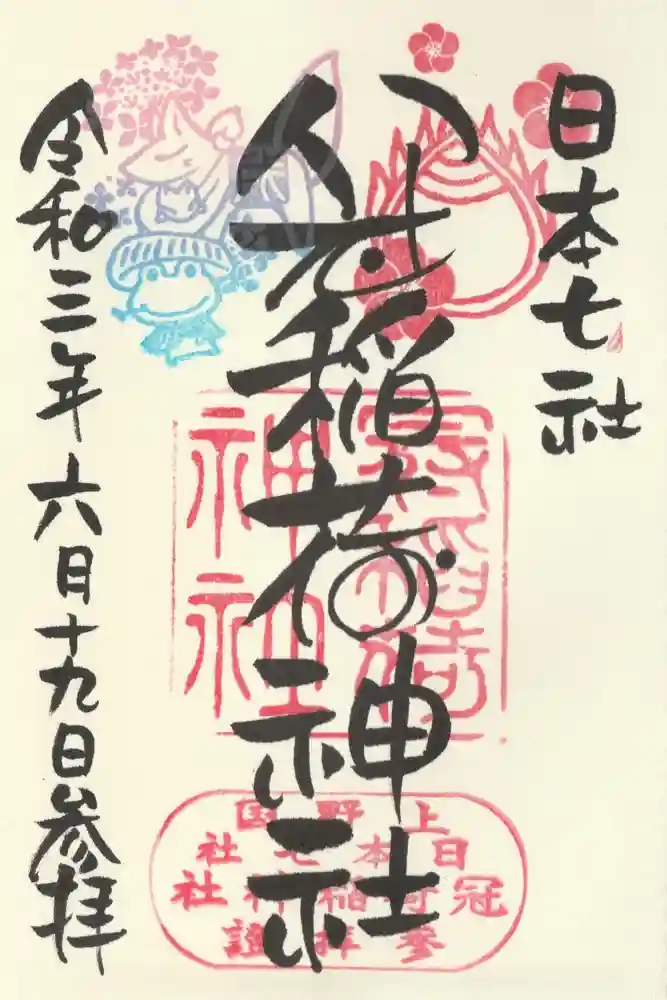 日本七社
冠稲荷神社
令和三年六月十九日参拝
冠稲荷
神社
上野国
日本七社
冠稲荷神社
參拝證